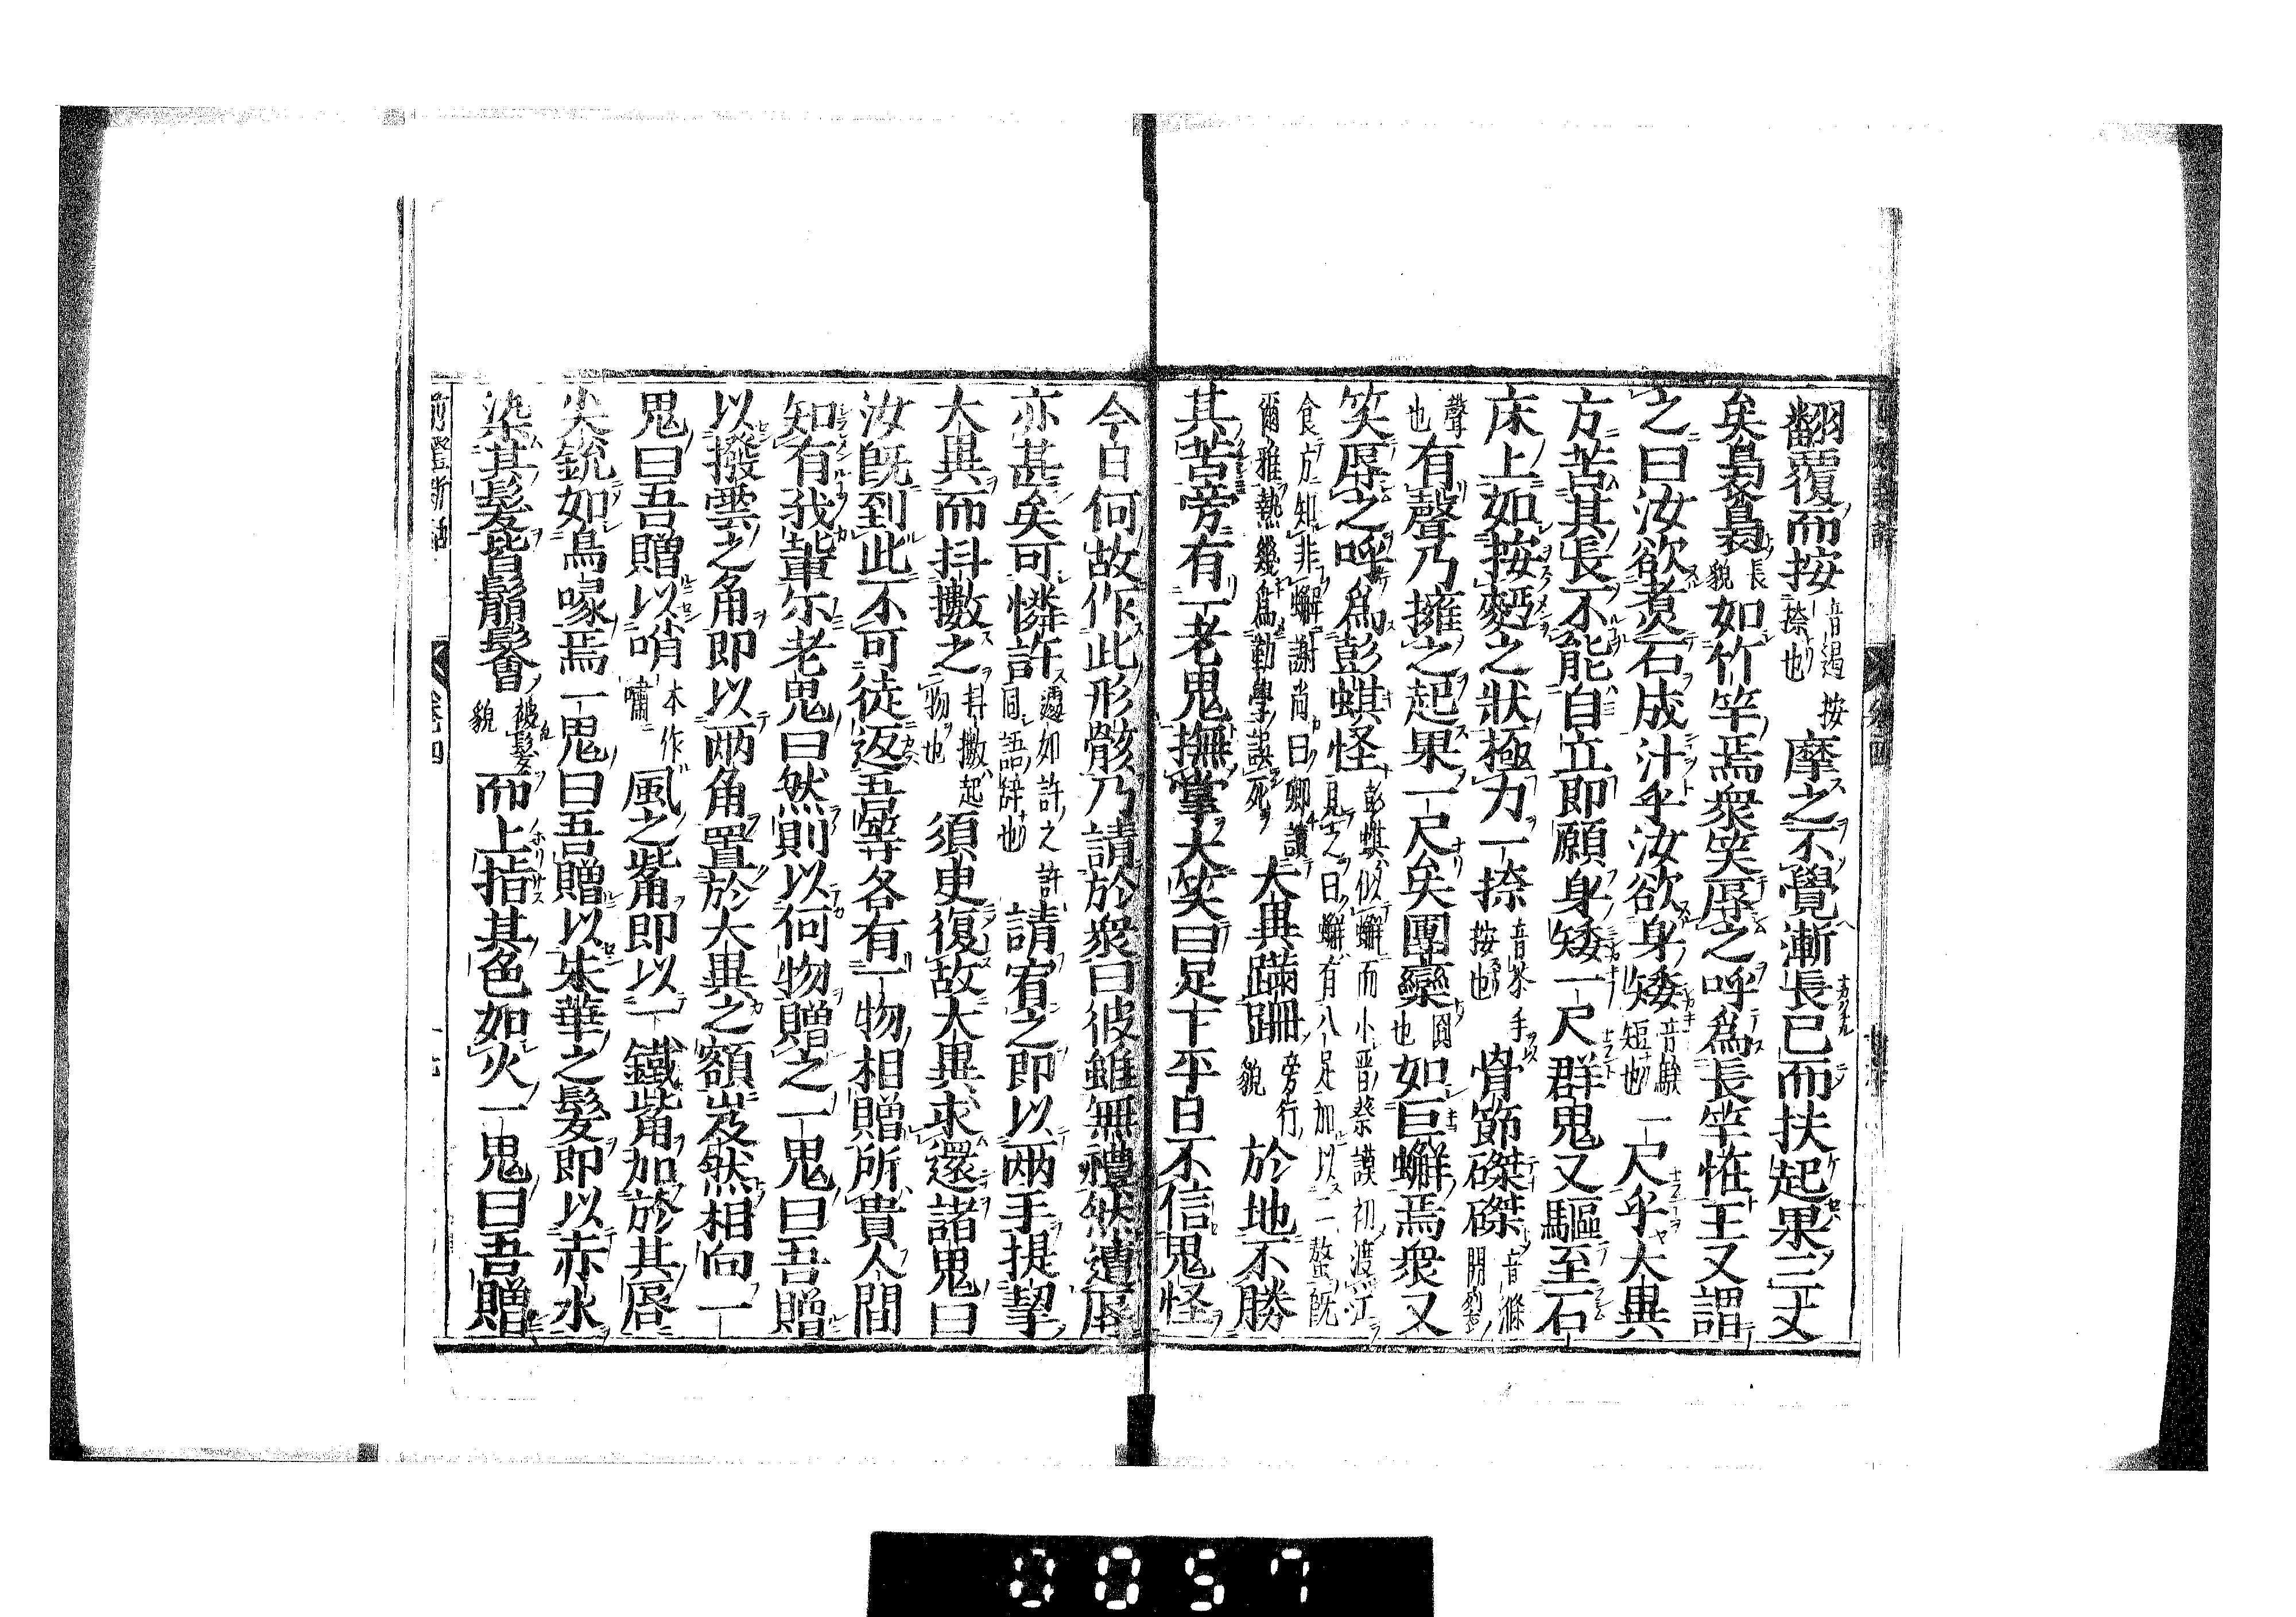 翻覆而按音遏按捺也摩之不覺漸長已而扶起果三丈
矣裊裊長貌如竹竿焉衆笑辱之呼爲長竿恠王又謂
之曰汝欲煑石成汁乎汝欲身矮音駭短也一尺乎大異
方苦其長不能自立即願身矮一尺群鬼又驅至石
床上如按麪之狀極力一捺音奈手按也骨節磔磔音滌開剝
聲也有聲乃擁之起果一尺矣團欒圓也如巨蠏焉衆又
笑辱之呼爲彭蜞怪彭蜞似蠏而小晋蔡謨初渡江見之曰蠏有八足加以二螯既
食方知非蠏謝尚曰卿讀爾雅熱幾爲勤學誤死大異蹣跚旁行貌於地不勝
其苦旁有一老鬼撫掌大笑曰足下平日不信鬼怪
今日何故作此形骸乃請於衆曰彼雖無禮然遭辱
亦甚矣可憐許邇如許之許同語辞也請宥之即以兩手提挈
大異而抖擻之抖擻起物也須臾復故大異求還諸鬼曰
汝既到此不可徒返吾等各有一物相贈所貴人間
知有我輩尓老鬼曰然則以何物贈之一鬼曰吾贈
以撥雲之角即以兩角置於大異之額岌然相向一
鬼曰吾贈以哨本作嘯風之觜即以一鐵觜加於其唇
尖銳如鳥喙焉一鬼曰吾贈以朱華之髮即以赤水
染其髮皆鬅鬙被髮貌而上指其色如火一鬼曰吾贈
剪燈新話
卷四
0057